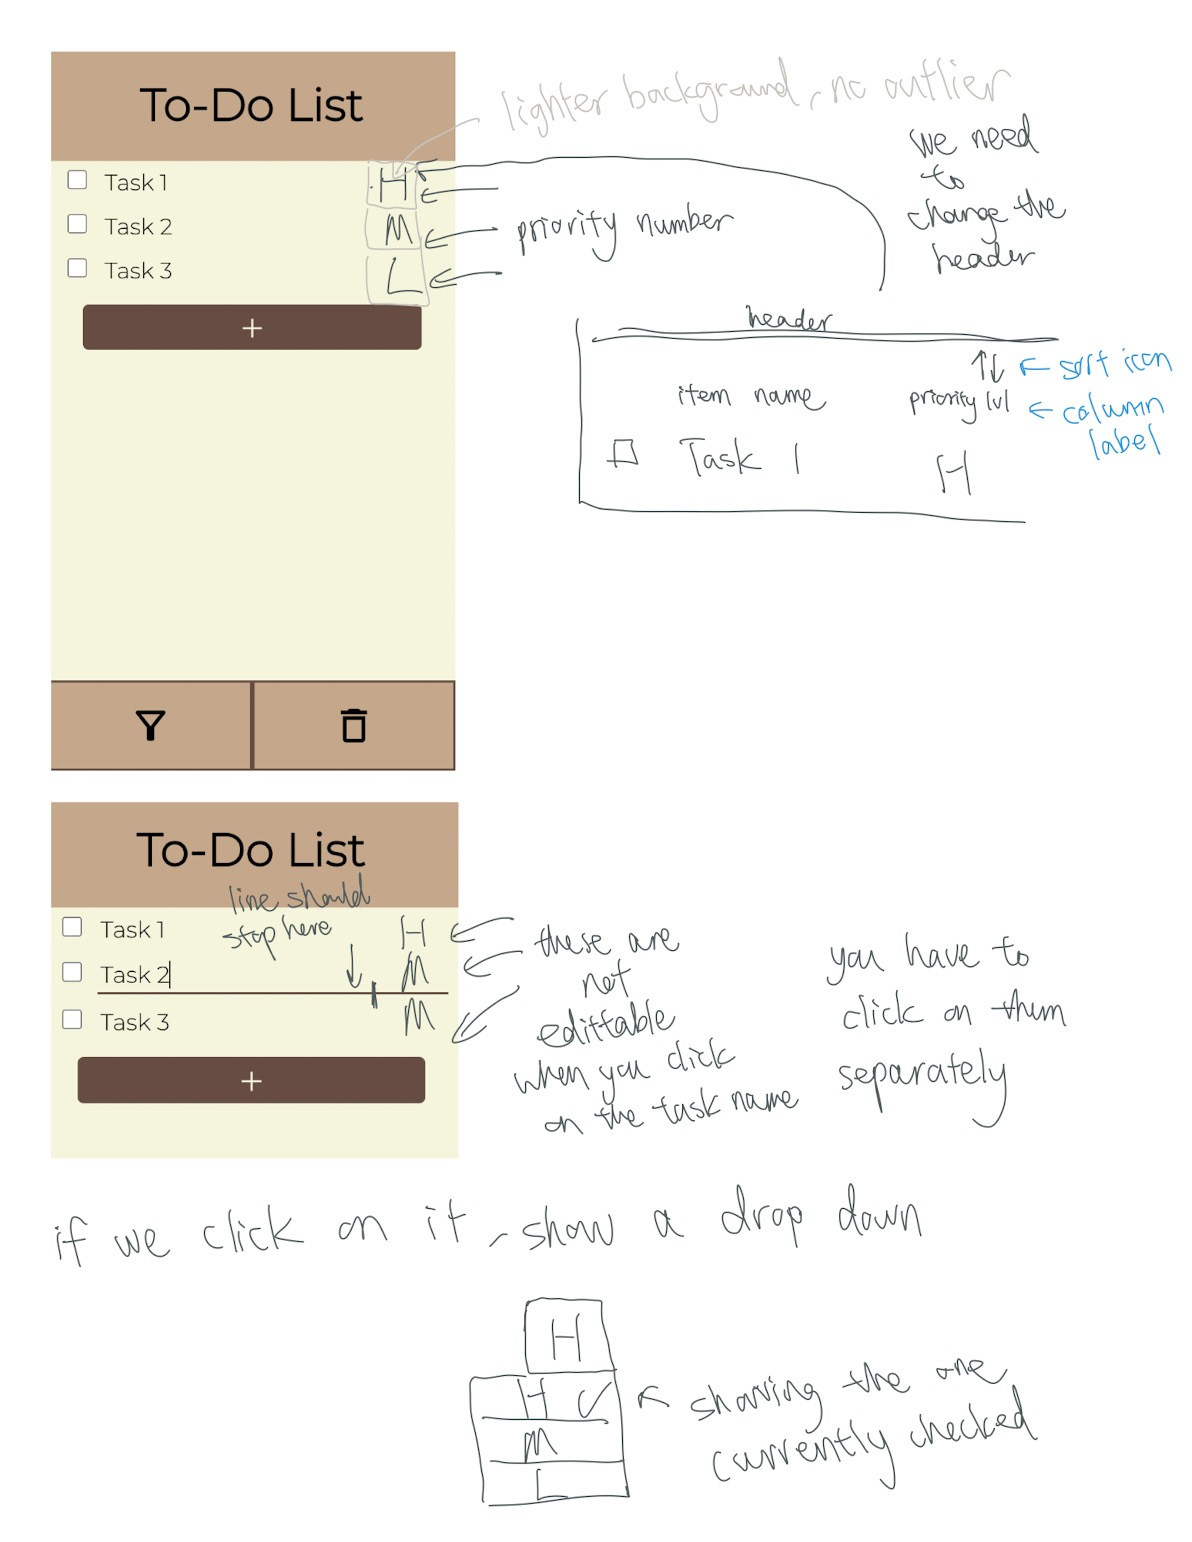 To-Do List
lighter background, no outlier
we need
to
change the
header
Task 1
H
Task 2
M
priority number
Task 3
L
+
header
↑↓ ← sort icon
item name
priority lvl ← column
label
Task 1
H
To-Do List
line should
stop here
Task 1
H
Task 2
M
Task 3
M
+
these are
not
edittable
when you click
on the task name
you have to
click on them
separately
if we click on it, show a drop down
H
H ✓
M
L
showing the one
currently checked